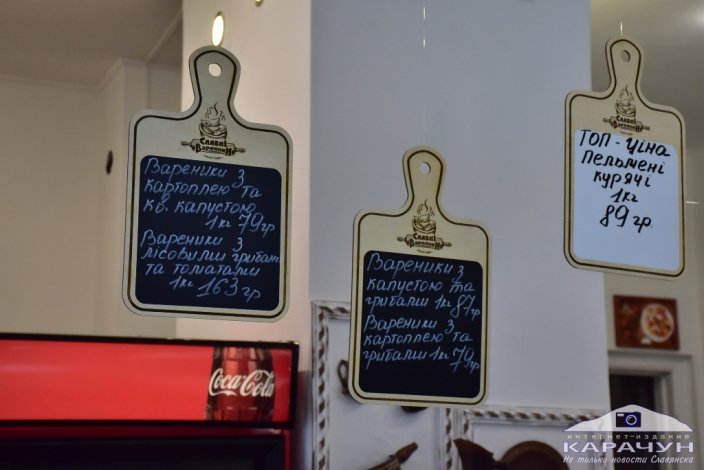 Славні
Вареники
Вареники з
картоплею та
кв. капустою
1кг 79гр
Вареники з
лісовими грибами
та томатами
1кг 163 гр
Славні
Вареники
Вареники з
капустою та
грибами 1кг 87гр
Вареники з
картоплею та
грибами 1кг 79гр
ТОП - ціна
Пельмені
курячі
1кг
89 гр.
Coca-Cola
интернет-издание
КАРАЧУН
Не только новости Славянска